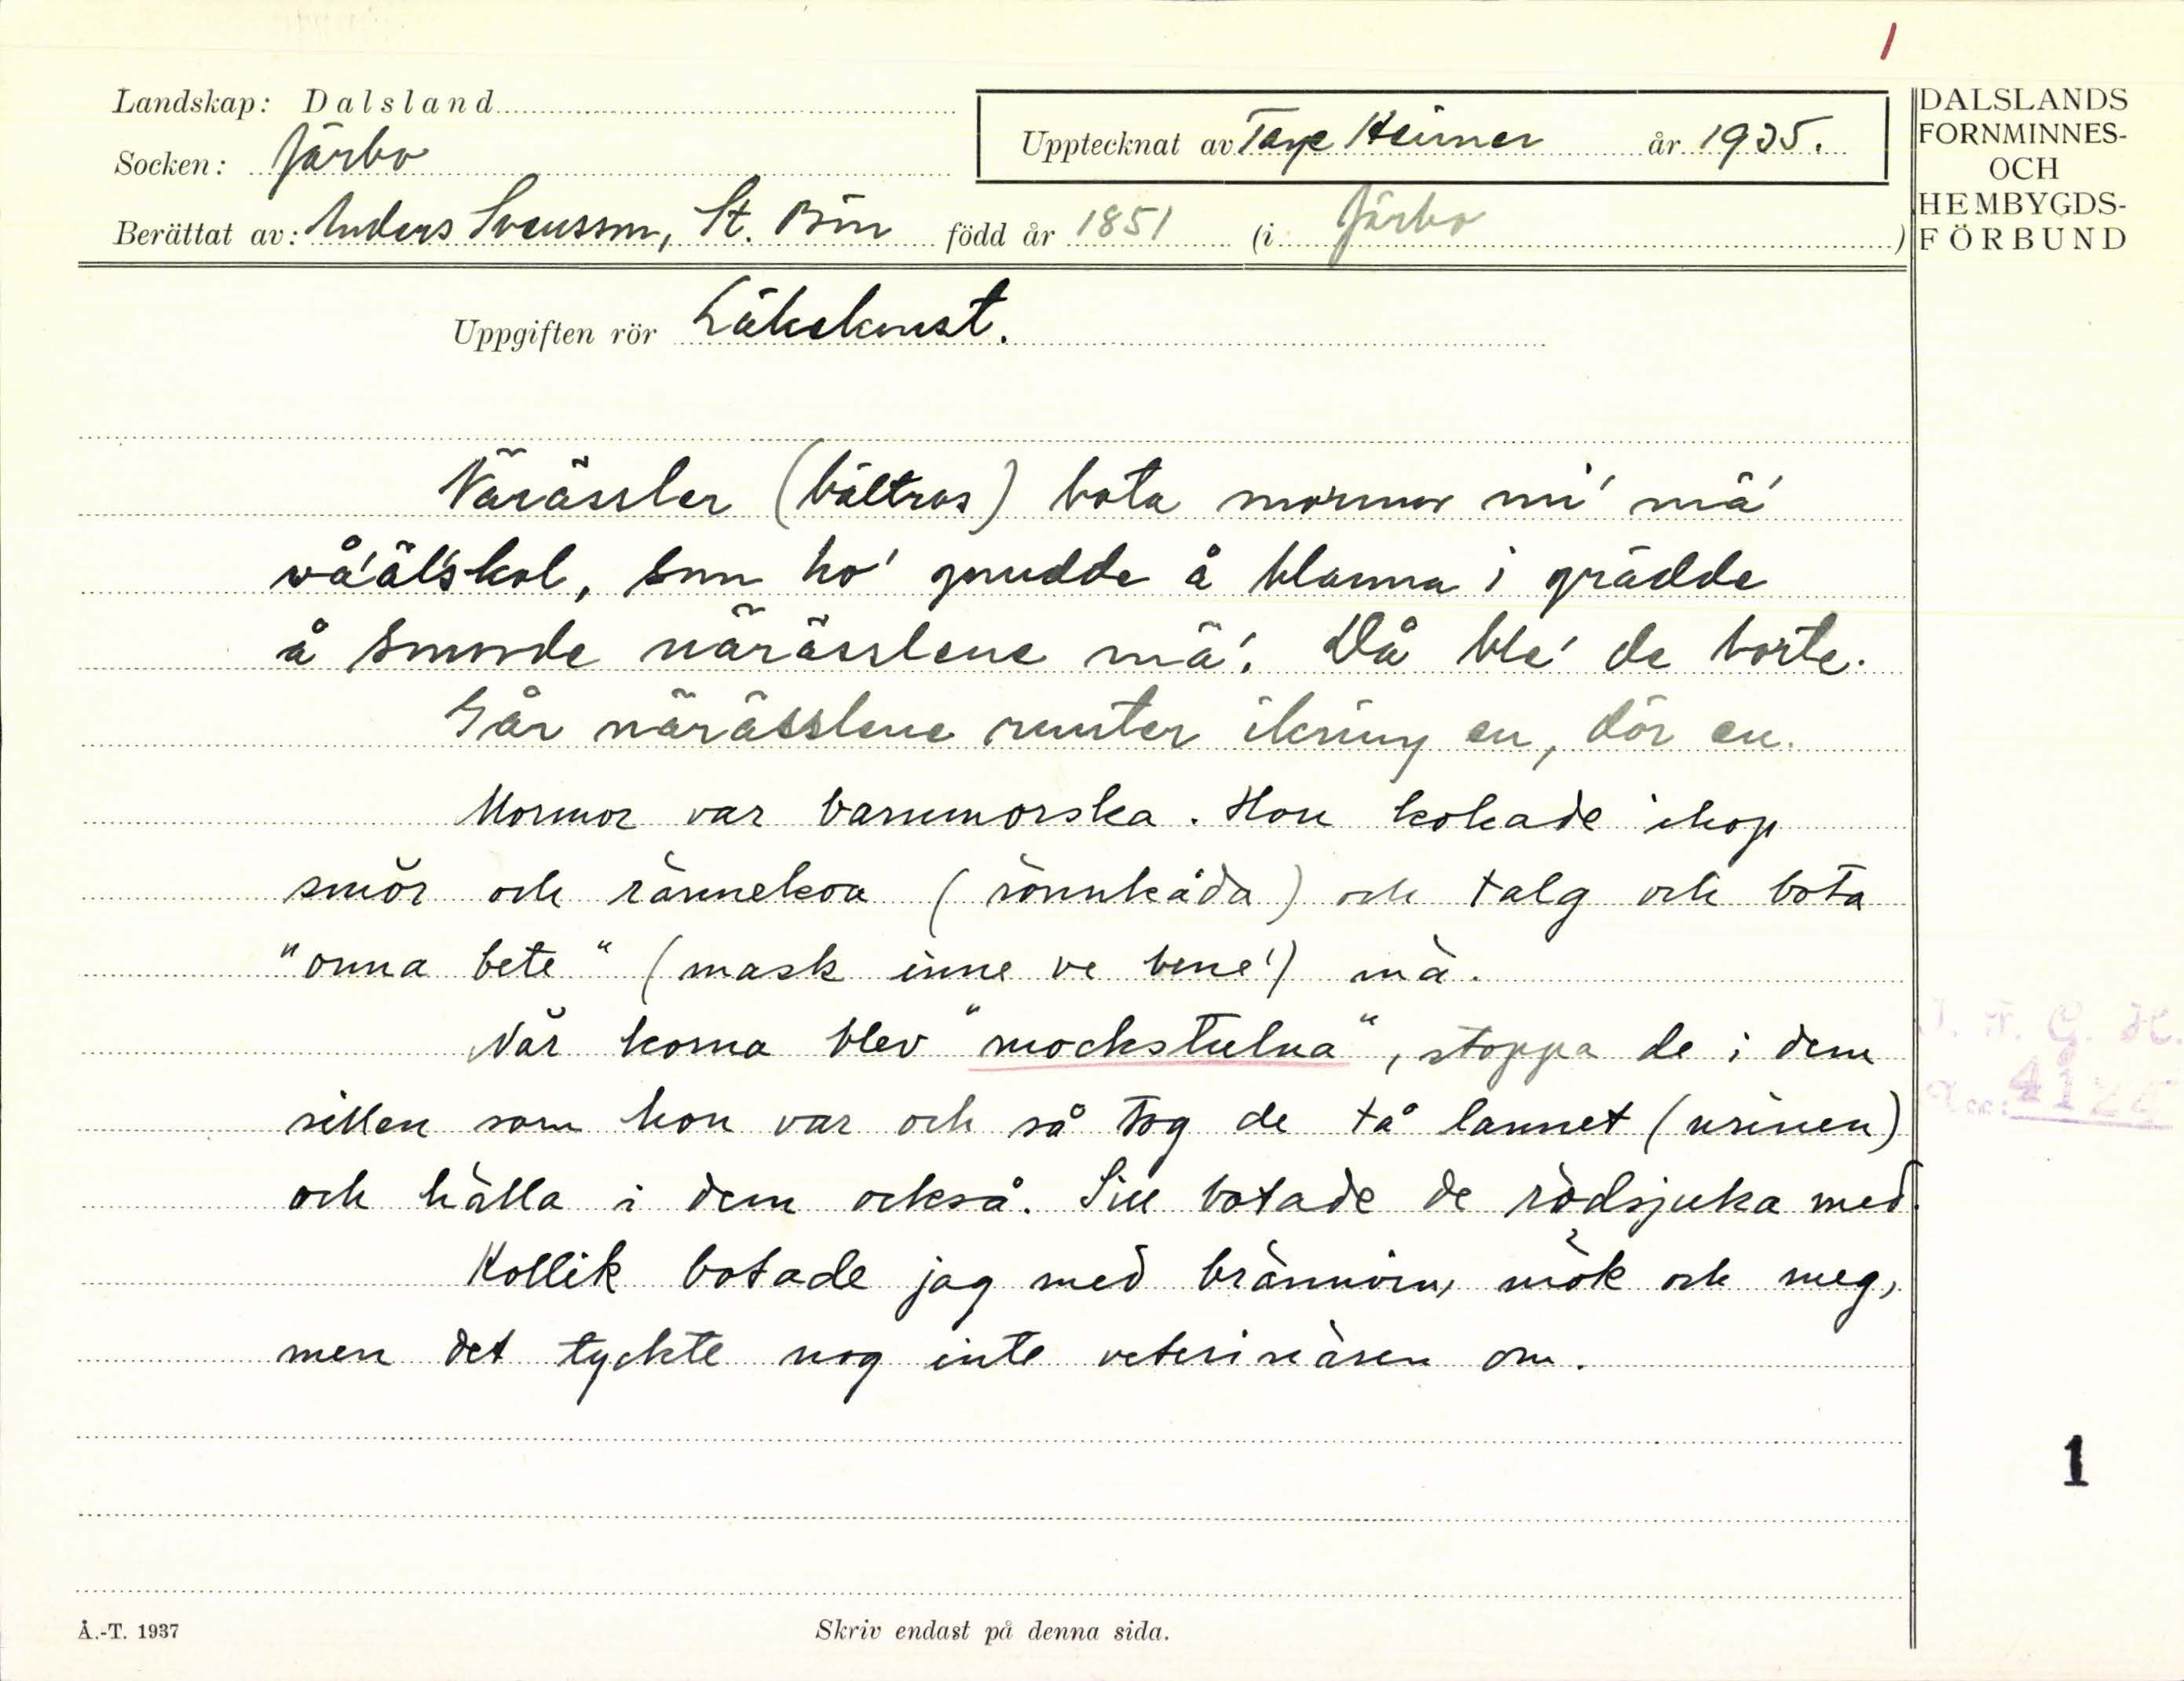 1
Landskap: Dalsland
Socken: Järbo
Upptecknat av Tage Heimer år 1935.
Berättat av: Anders Svensson, St. Bön född år 1851 (i Järbo)
DALSLANDS
FORNMINNES-
OCH
HEMBYGDS-
FÖRBUND
Uppgiften rör Läkekonst.
Närässler (bältros) bota mormor mi' mä'
wå'äl'skol, som ho' gnudde å blanna i grädde
å smorde närässlene mä'. Då ble' de borte.
Går närässlene runter ikring en, dör en.
Mormor var barnmorska. Hon kokade ihop
smör och rännekoa (rönnkåda) och talg och bota
"onna bete" (mask inne ve bene') mä.
När korna blev "mockstulna", stoppa de i dem
sillen som hon var och så tog de tå lannet (urinen)
och hälla i dem också. Sill botade de rödsjuka med.
Kollik botade jag med brännvin, mök och meg,
men det tyckte nog inte veterinären om.
1
Å.-T. 1937
Skriv endast på denna sida.